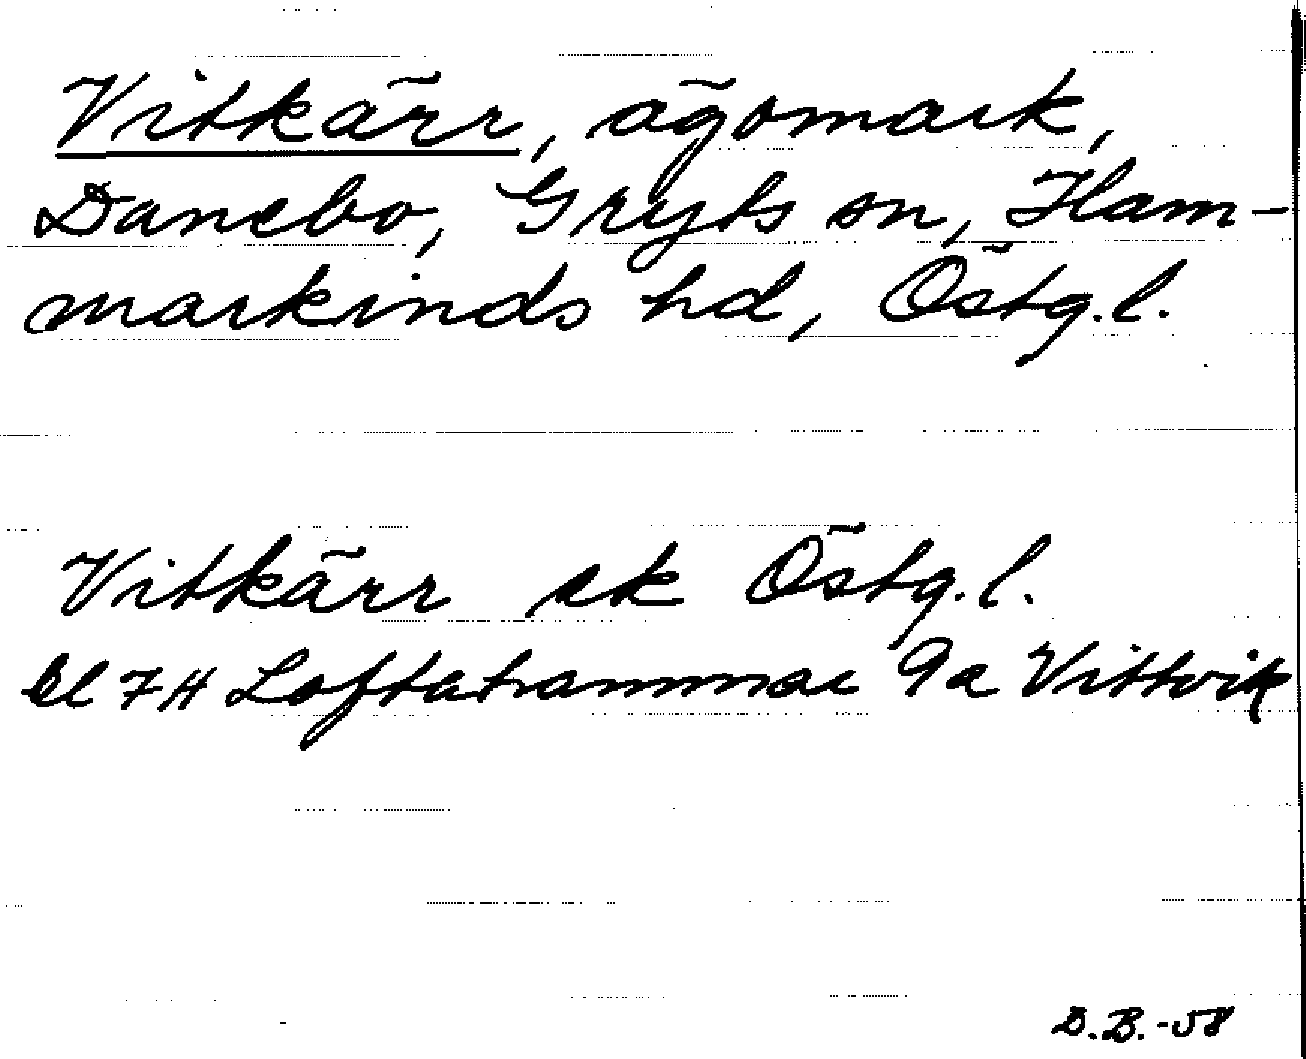 Vitkärr, ägomark,
Danebo, Gryts sn, Ham-
markinds hd, Östg.l.
Vitkärr ek Östg.l.
Bl 7H Loftahammar 9a Vittvik
B.B.-58